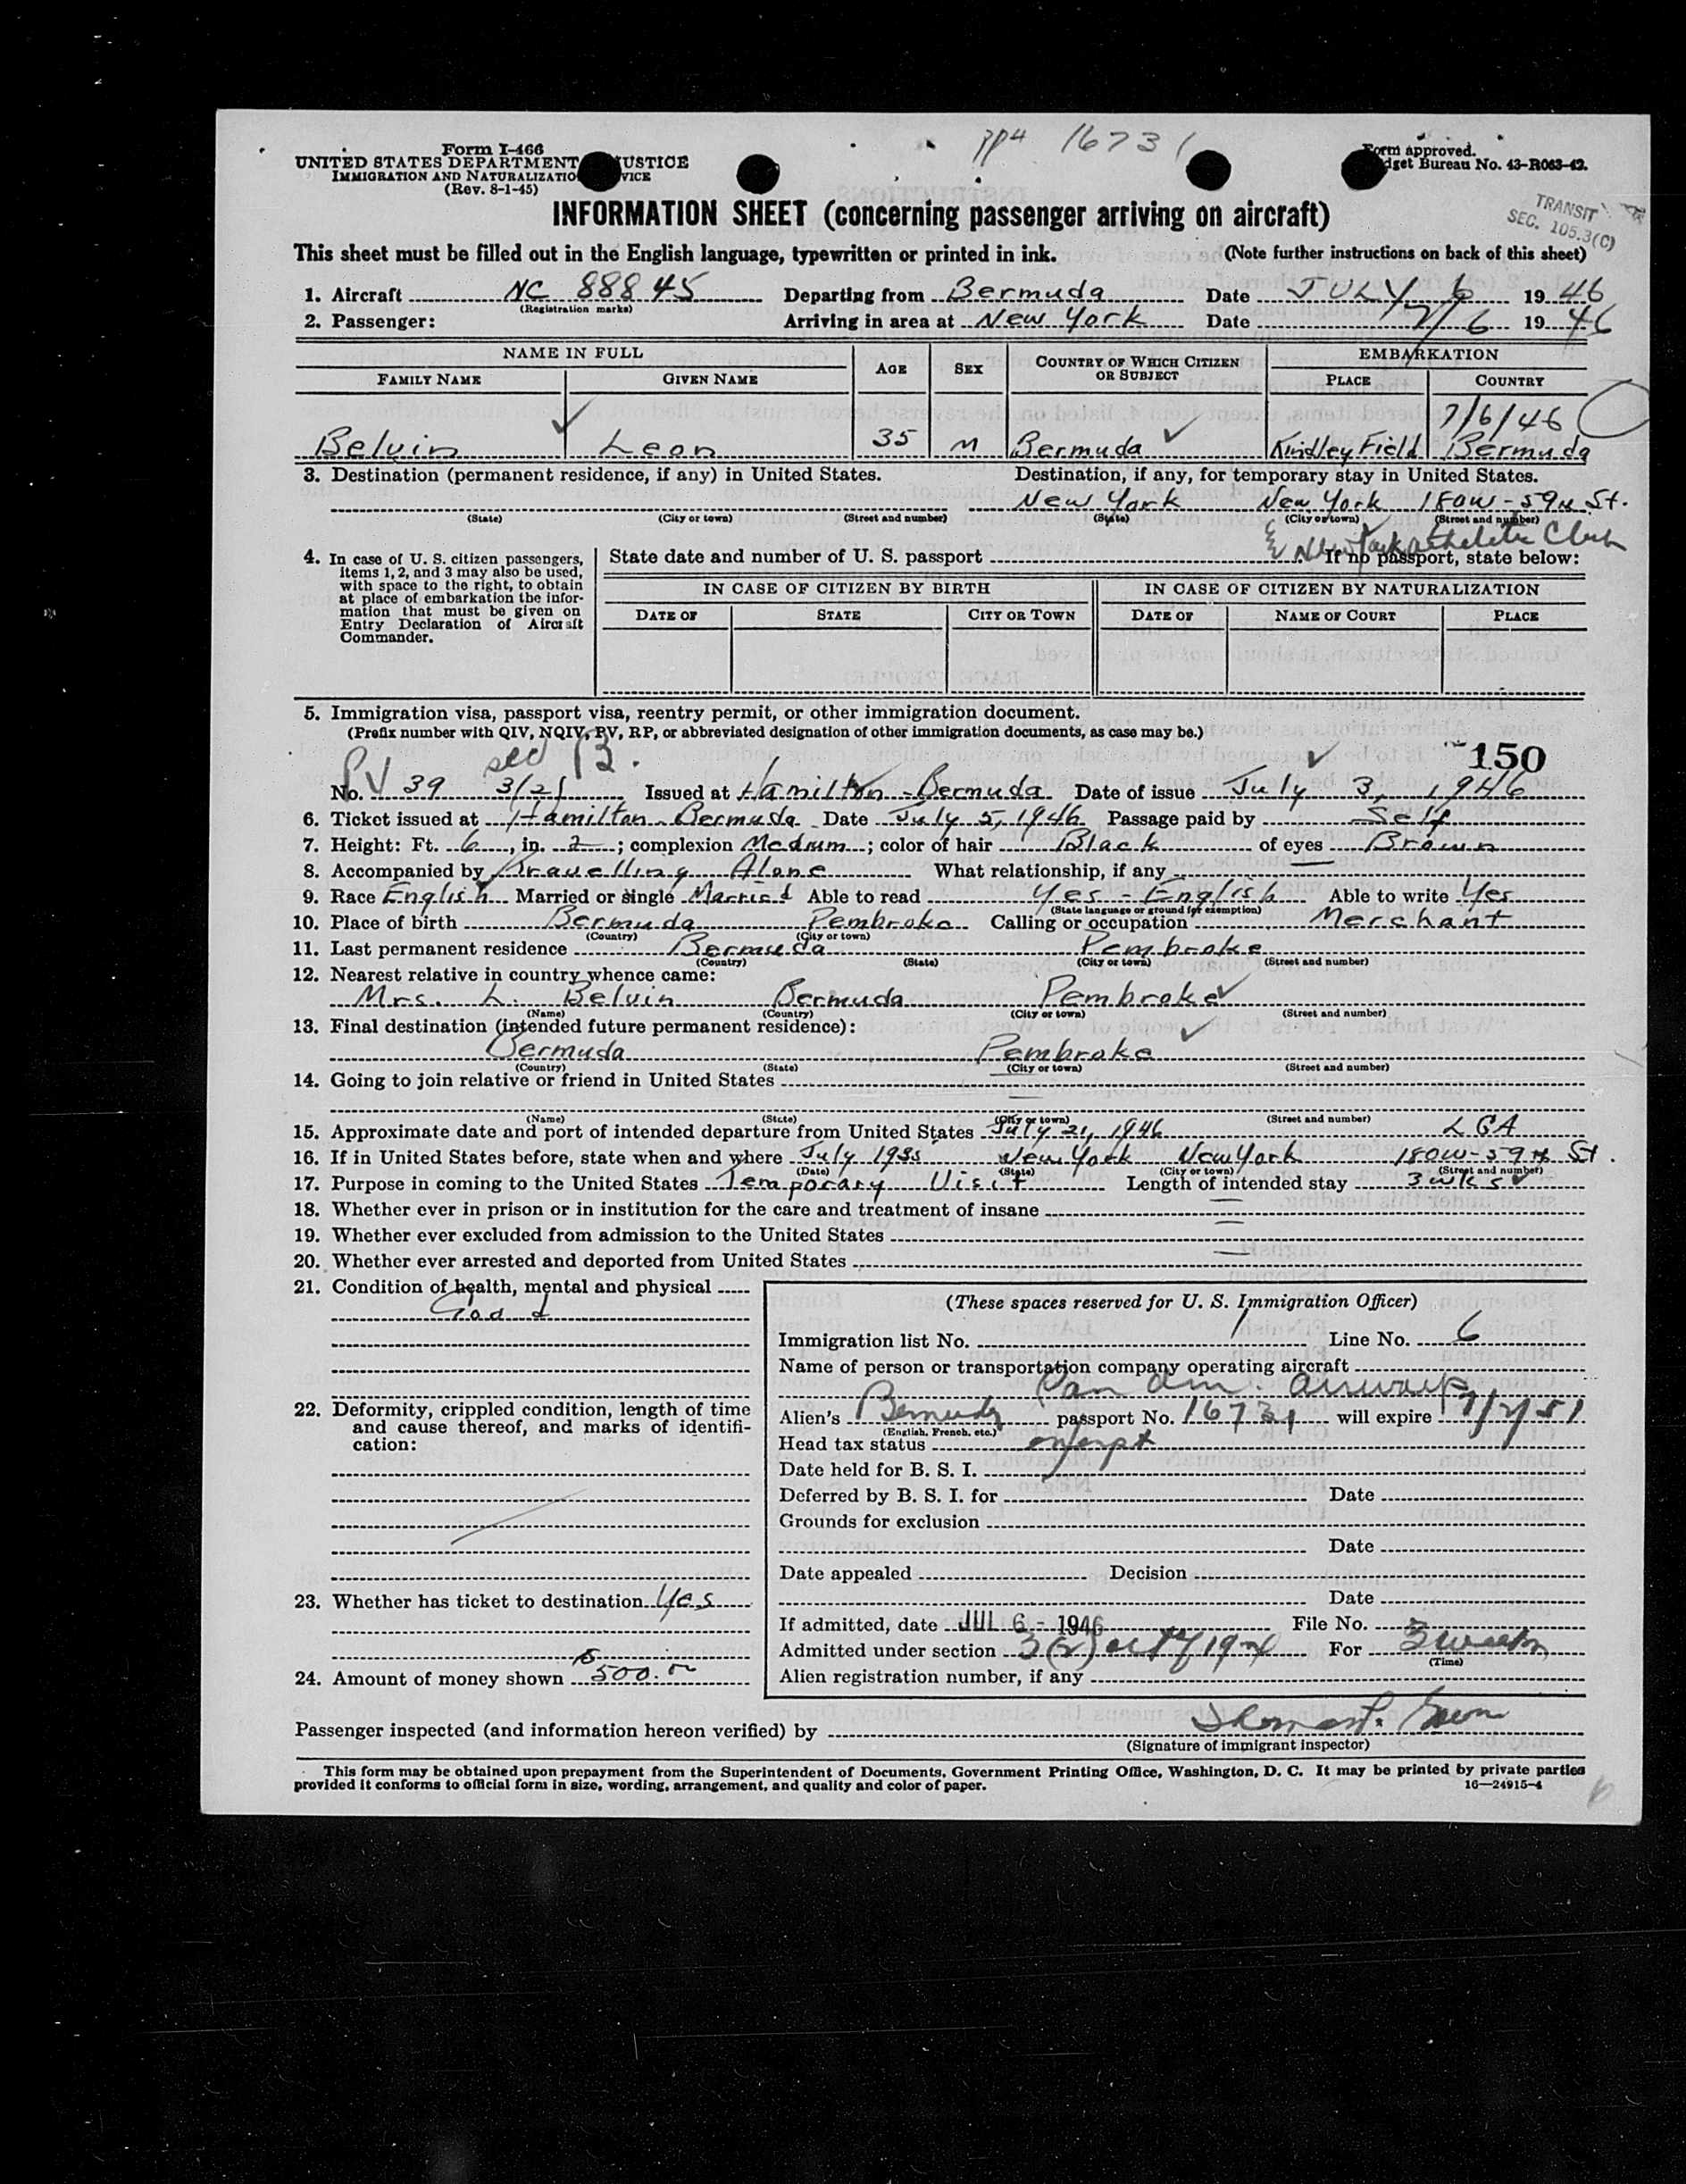 PP# 16731
Form I-466
UNITED STATES DEPARTMENT USTICE
IMMIGRATION AND NATURALIZATIO VICE
(Rev. 8-1-45)
Form approved.
dget Bureau No. 43-R063-42.
TRANSIT
SEC. 105.3(C)
INFORMATION SHEET (concerning passenger arriving on aircraft)
This sheet must be filled out in the English language, typewritten or printed in ink. (Note further instructions on back of this sheet)
1. Aircraft NC 88845 Departing from Bermuda Date JULY 6 1946
(Registration marks)
2. Passenger: Arriving in area at New York Date 7/6 1946
NAME IN FULL AGE SEX COUNTRY OF WHICH CITIZEN OR SUBJECT EMBARKATION
FAMILY NAME GIVEN NAME PLACE COUNTRY
7/6/46
Belvin Leon 35 M Bermuda Kindley Field Bermuda
3. Destination (permanent residence, if any) in United States. Destination, if any, for temporary stay in United States.
New York New York 180W-59th St.
(State) (City or town) (Street and number) (State) (City or town) (Street and number)
New York Athletic Club
4. In case of U. S. citizen passengers, items 1, 2, and 3 may also be used, with space to the right, to obtain at place of embarkation the information that must be given on Entry Declaration of Aircraft Commander.
State date and number of U. S. passport If no passport, state below:
IN CASE OF CITIZEN BY BIRTH IN CASE OF CITIZEN BY NATURALIZATION
DATE OF STATE CITY OR TOWN DATE OF NAME OF COURT PLACE
5. Immigration visa, passport visa, reentry permit, or other immigration document.
(Prefix number with QIV, NQIV, PV, RP, or abbreviated designation of other immigration documents, as case may be.)
150
PV sec
No. 39 3/21 Issued at Hamilton - Bermuda Date of issue July 3, 1946
6. Ticket issued at Hamilton - Bermuda Date July 5, 1946 Passage paid by Self
7. Height: Ft. 6, in. 2; complexion Medium; color of hair Black of eyes Brown
8. Accompanied by Travelling Alone What relationship, if any
9. Race English Married or single Married Able to read Yes - English Able to write Yes
(State language or ground for exemption)
10. Place of birth Bermuda Pembroke Calling or occupation Merchant
(Country) (City or town)
11. Last permanent residence Bermuda Pembroke
(Country) (State) (City or town) (Street and number)
12. Nearest relative in country whence came:
Mrs. L. Belvin Bermuda Pembroke
(Name) (Country) (City or town) (Street and number)
13. Final destination (intended future permanent residence):
Bermuda Pembroke
(Country) (State) (City or town) (Street and number)
14. Going to join relative or friend in United States
(Name) (State) (City or town) (Street and number)
15. Approximate date and port of intended departure from United States July 21, 1946 LGA
16. If in United States before, state when and where July 1935 New York New York 180W-59th St.
(Date) (State) (City or town) (Street and number)
17. Purpose in coming to the United States Temporary Visit Length of intended stay 3 wks
18. Whether ever in prison or in institution for the care and treatment of insane
19. Whether ever excluded from admission to the United States
20. Whether ever arrested and deported from United States
21. Condition of health, mental and physical
Good
(These spaces reserved for U. S. Immigration Officer)
Immigration list No. 1 Line No. 6
Name of person or transportation company operating aircraft
Pan Am. Airways
22. Deformity, crippled condition, length of time and cause thereof, and marks of identification:
Alien's Bermuda passport No. 16731 will expire 7/2/51
(English, French, etc.)
Head tax status exempt
Date held for B. S. I.
Deferred by B. S. I. for Date
Grounds for exclusion
Date
Date appealed Decision
23. Whether has ticket to destination Yes
Date
If admitted, date JUL 6 - 1946 File No.
Admitted under section 3(2) act of 1924 For 3 weeks
(Time)
24. Amount of money shown $500.00
Alien registration number, if any
Passenger inspected (and information hereon verified) by
(Signature of immigrant inspector)
This form may be obtained upon prepayment from the Superintendent of Documents, Government Printing Office, Washington, D. C. It may be printed by private parties
provided it conforms to official form in size, wording, arrangement, and quality and color of paper. 16—24915-4